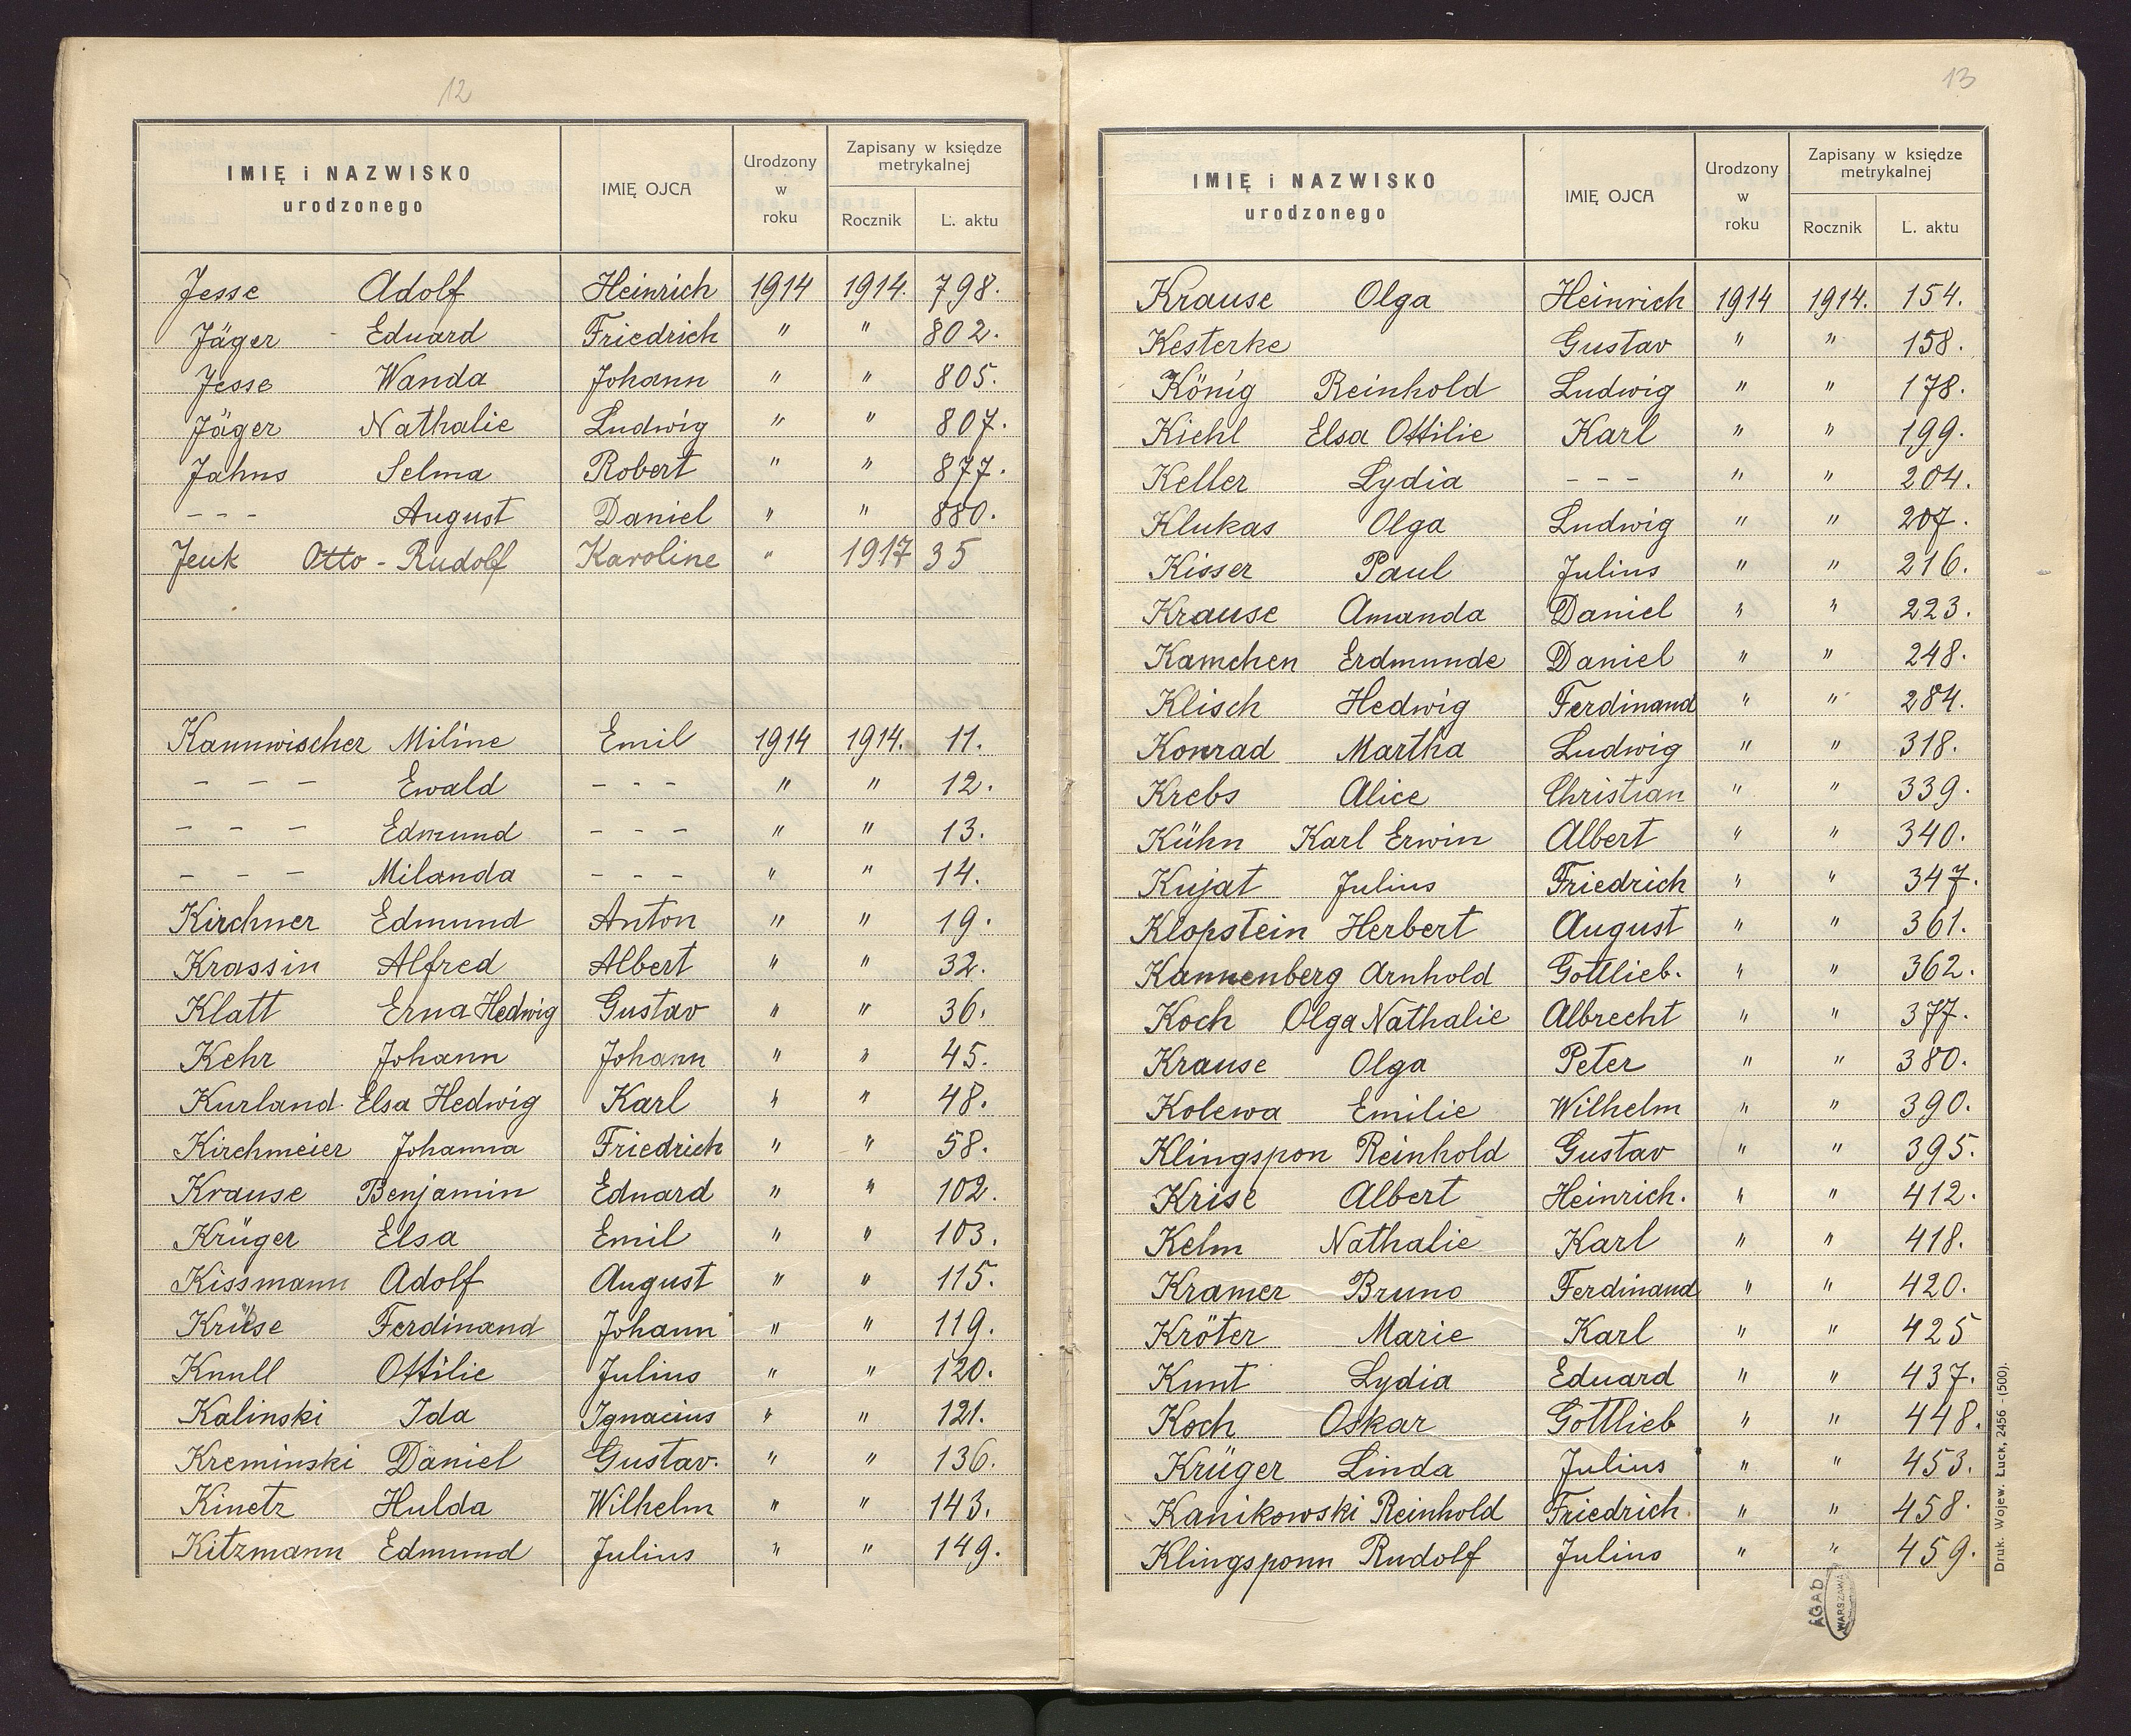 12
IMIĘ i NAZWISKO urodzonego IMIĘ OJCA Urodzony w roku Zapisany w księdze metrykalnej Rocznik L. aktu
Jesse Adolf Heinrich 1914 1914. 798.
Jäger - Eduard Friedrich " " 802.
Jesse Wanda Johann " " 805.
Jäger Nathalie Ludwig " " 807.
Jahns Selma Robert " " 877.
- - - August Daniel " " 880.
Jeuk Otto - Rudolf Karoline " 1917 35
Kannwischer Miline Emil 1914 1914. 11.
- - - Ewald - - - " " 12.
- - - Edmund - - - " " 13.
- - - Milanda - - - " " 14.
Kirchner Edmund Anton " " 19.
Krassin Alfred Albert " " 32.
Klatt Erna Hedwig Gustav " " 36.
Kehr Johann Johann " " 45.
Kurland Elsa Hedwig Karl " " 48.
Kirchmeier Johanna Friedrich " " 58.
Krause Benjamin Eduard " " 102.
Krüger Elsa Emil " " 103.
Kissmann Adolf August " " 115.
Ferdinand Johann " " 119.
Knull Ottilie Julius " " 120.
Kalinski Ida Ignacius " " 121.
Kreminski Daniel Gustav. " " 136.
Kinetz Hulda Wilhelm " " 143.
Kitzmann Edmund Julius " " 149.
13
IMIĘ i NAZWISKO urodzonego IMIĘ OJCA Urodzony w roku Zapisany w księdze metrykalnej Rocznik L. aktu
Krause Olga Heinrich 1914 1914. 154.
Kesterke Gustav " " 158.
König Reinhold Ludwig " " 178.
Kiehl Elsa Ottilie Karl " " 199.
Keller Lydia - - - " " 204.
Klukas Olga Ludwig " " 207.
Kisser Paul Julius " " 216.
Krause Amanda Daniel " " 223.
Kamchen Erdmunde Daniel " " 248.
Klisch Hedwig Ferdinand " " 284.
Konrad Martha Ludwig " " 318.
Krebs Alice Christian " " 339.
Kühn Karl Erwin Albert " " 340.
Kujat Julius Friedrich " " 347.
Klopstein Herbert August " " 361.
Kannenberg Arnhold Gottlieb. " " 362.
Koch Olga Nathalie Albrecht " " 377.
Krause Olga Peter " " 380.
Kolewa Emilie Wilhelm " " 390.
Klingspon Reinhold Gustav " " 395.
Krise Albert Heinrich. " " 412.
Kelm Nathalie Karl " " 418.
Kramer Bruno Ferdinand " " 420.
Kröter Marie Karl " " 425
Kunt Lydia Eduard " " 437.
Koch Oskar Gottlieb " " 448.
Krüger Linda Julius " " 453.
Kanikowski Reinhold Friedrich. " " 458.
Klingsponn Rudolf Julius " " 459.
Druk. Wojew. Łuck, 2456 - (500).
AGAD
WARSZAWA